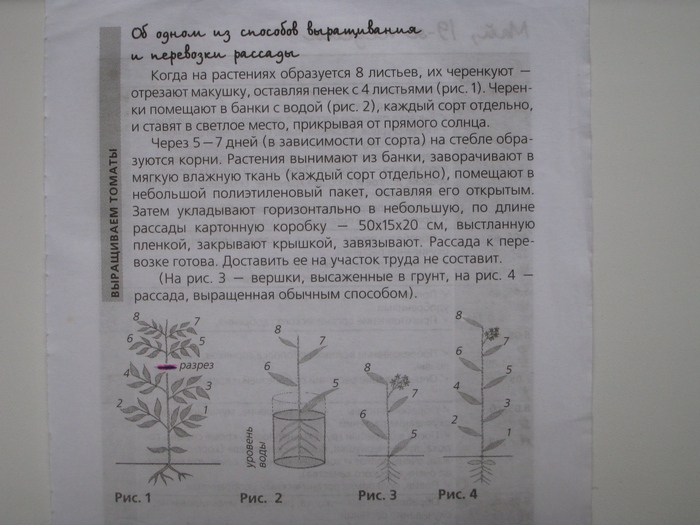 Об одном из способов выращивания
и перевозки рассады
Когда на растениях образуется 8 листьев, их черенкуют —
отрезают макушку, оставляя пенек с 4 листьями (рис. 1). Черен-
ки помещают в банки с водой (рис. 2), каждый сорт отдельно,
и ставят в светлое место, прикрывая от прямого солнца.
Через 5—7 дней (в зависимости от сорта) на стебле обра-
зуются корни. Растения вынимают из банки, заворачивают в
мягкую влажную ткань (каждый сорт отдельно), помещают в
небольшой полиэтиленовый пакет, оставляя его открытым.
Затем укладывают горизонтально в небольшую, по длине
рассады картонную коробку — 50х15х20 см, выстланную
пленкой, закрывают крышкой, завязывают. Рассада к пере-
возке готова. Доставить ее на участок труда не составит.
(На рис. 3 — вершки, высаженные в грунт, на рис. 4 —
рассада, выращенная обычным способом).
ВЫРАЩИВАЕМ ТОМАТЫ
8
7
6
5
разрез
4
3
2
1
Рис. 1
8
7
6
5
уровень
воды
Рис. 2
8
7
6
5
Рис. 3
8
7
6
5
4
3
2
1
Рис. 4